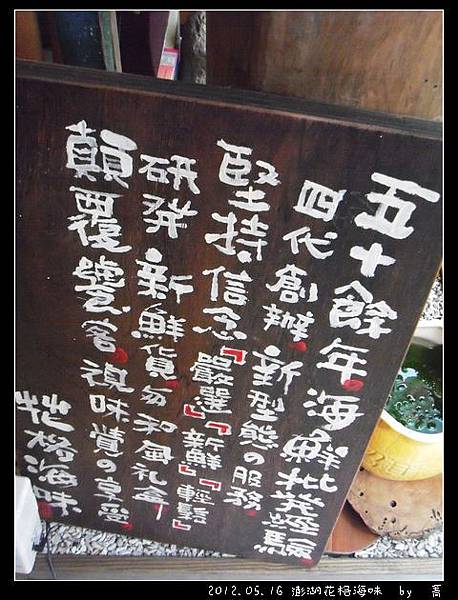 五十餘年。海鮮批發經驗
四代創辦。新型態の服務
堅持信念『嚴選』『新鮮』『輕鬆』
研發新鮮貨。勿和每礼盒！
顛覆饕客。視味覺の享受。
牠格海味
2012.05.16 澎湖花格海味 by 喬